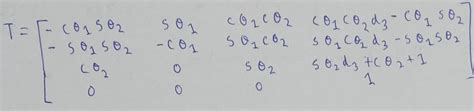 T = [ - cθ1 sθ2   sθ1   cθ1 cθ2   cθ1 cθ2 d3 - cθ1 sθ2
- sθ1 sθ2   - cθ1   sθ1 cθ2   sθ1 cθ2 d3 - sθ1 sθ2
cθ2   0   sθ2   sθ2 d3 + cθ2 + 1
0   0   0   1 ]